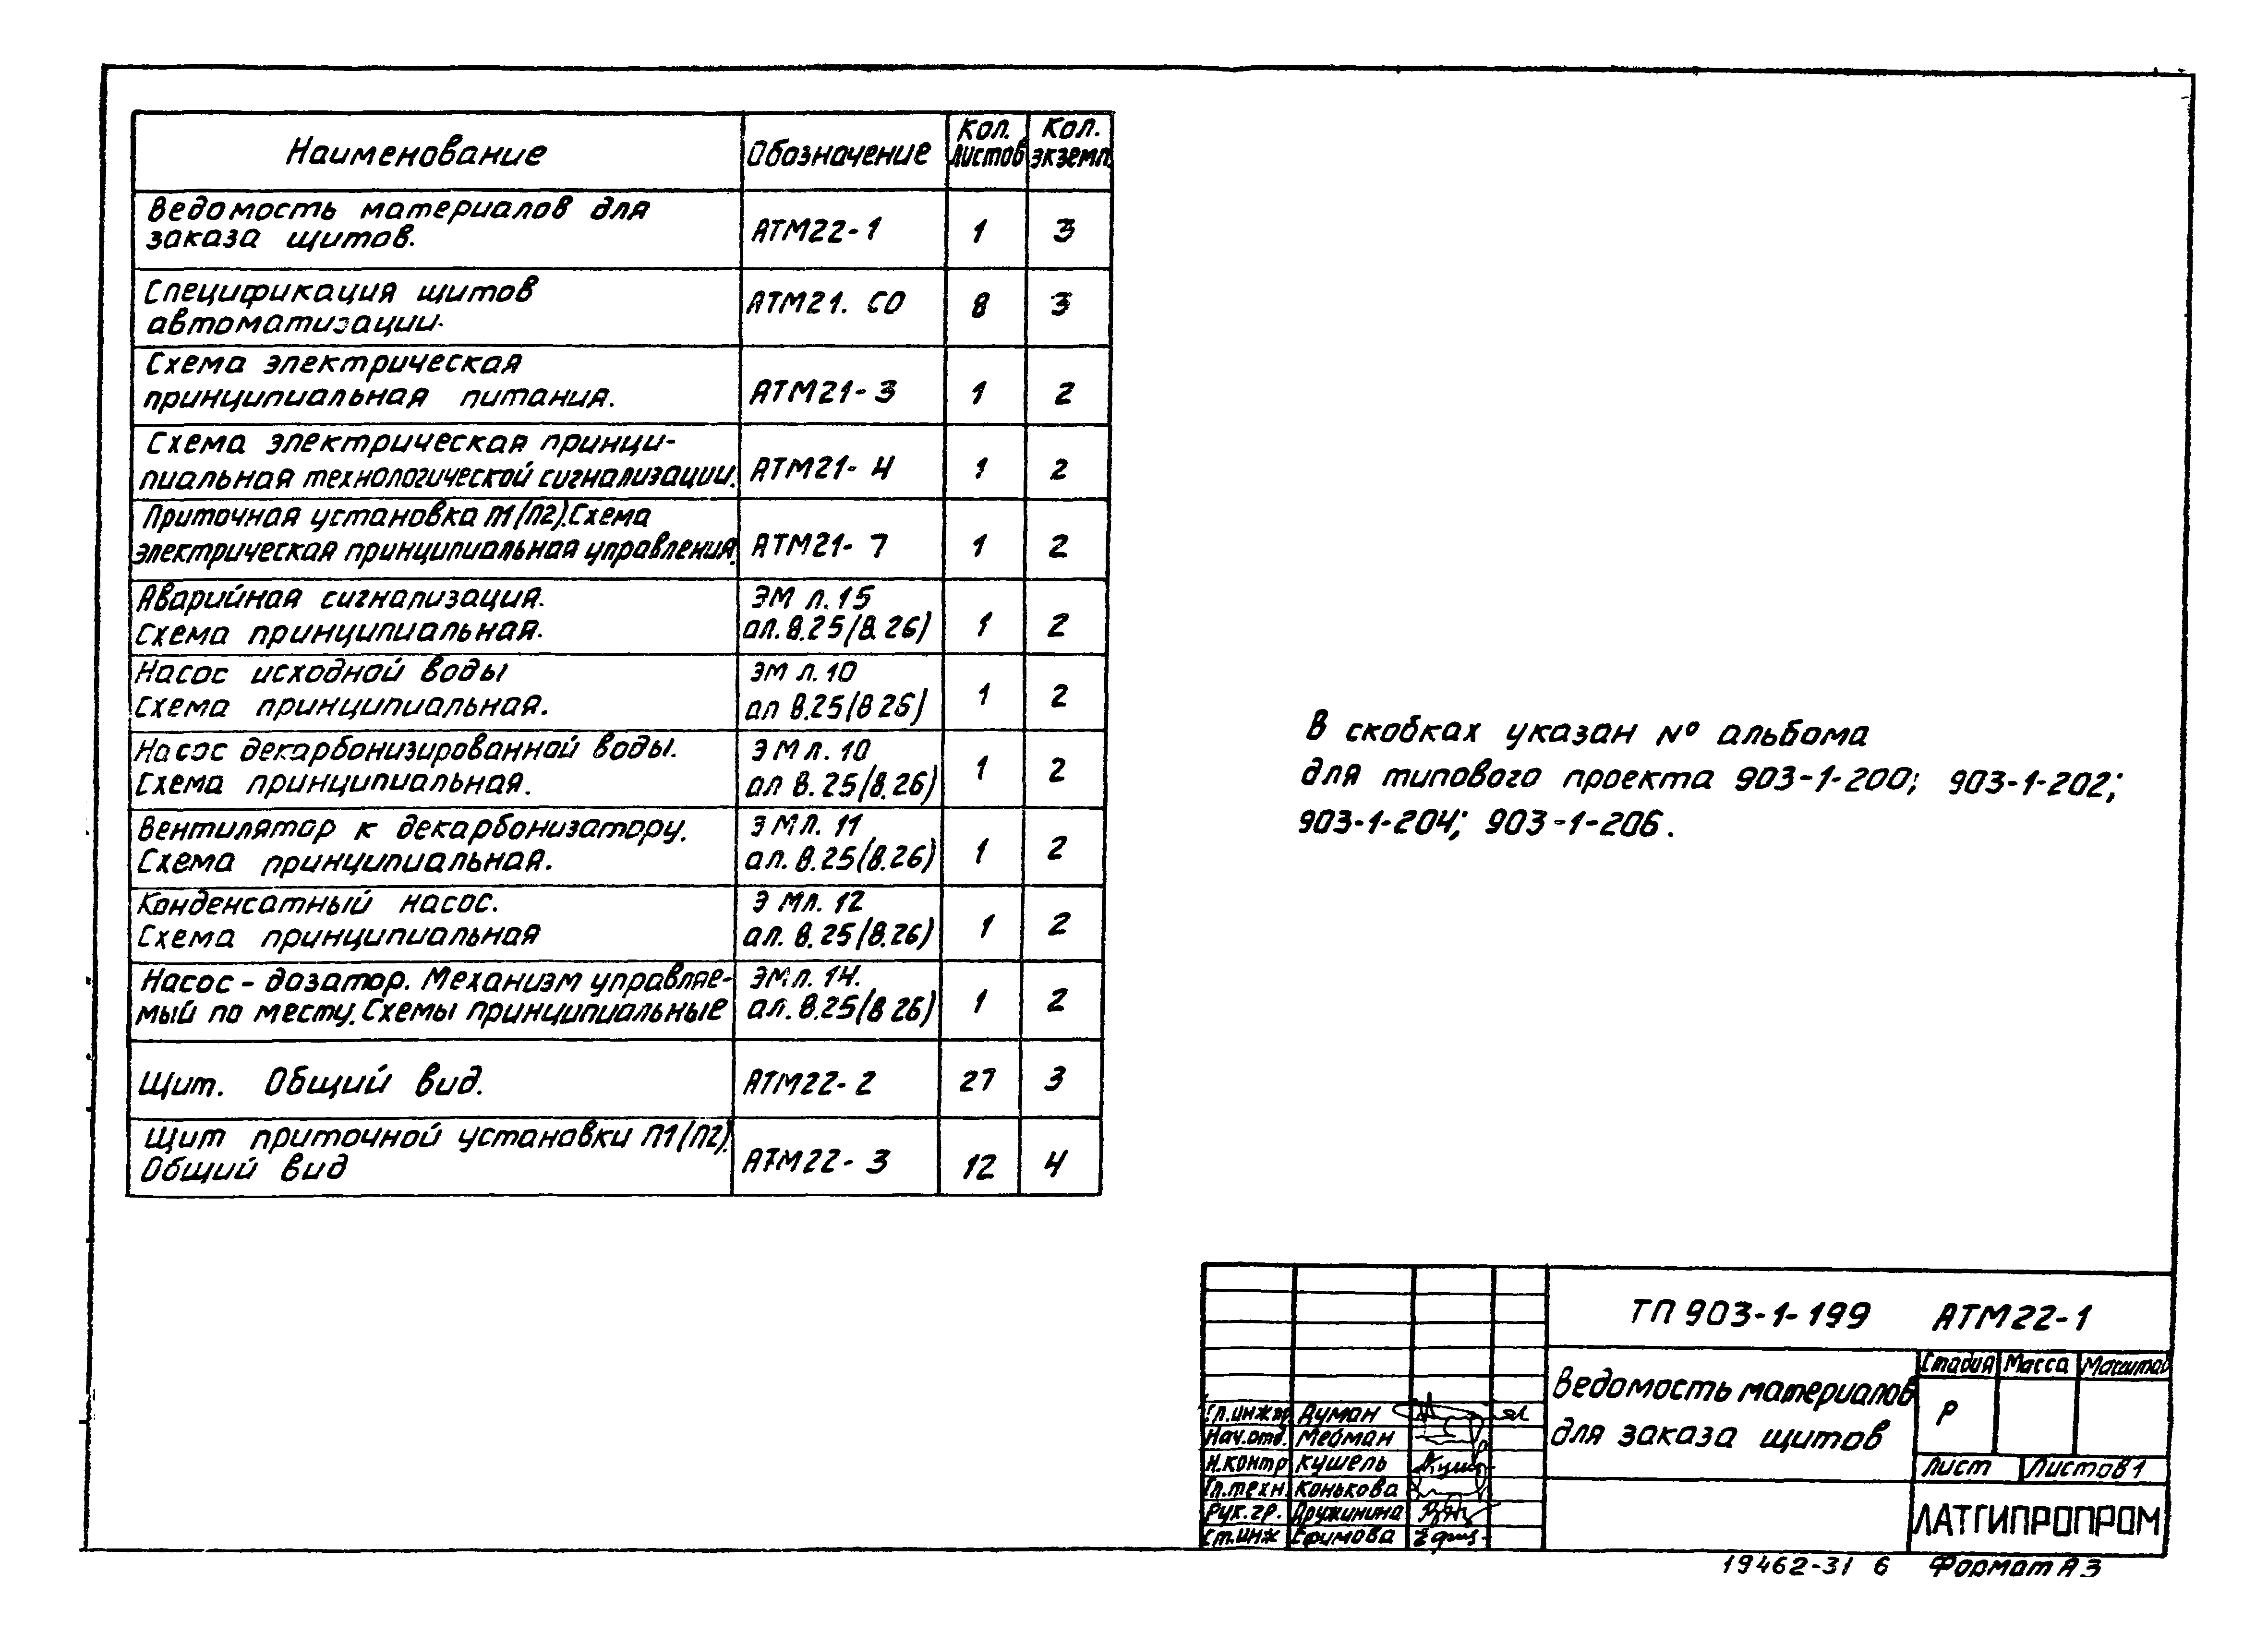 Наименование
Обозначение
Кол. листов
Кол. экземп.
Ведомость материалов для
заказа щитов.
АТМ22-1
1
3
Спецификация щитов
автоматизации.
АТМ21. СО
8
3
Схема электрическая
принципиальная питания.
АТМ21-3
1
2
Схема электрическая принци-
пиальная технологической сигнализации.
АТМ21-4
1
2
Приточная установка П1/П2). Схема
электрическая принципиальная управления.
АТМ21-7
1
2
Аварийная сигнализация.
Схема принципиальная.
ЭМ л.15
ал.8.25/8.26)
1
2
Насос исходной воды
Схема принципиальная.
ЭМ л.10
ал 8.25/8 26)
1
2
Насос декарбонизированной воды.
Схема принципиальная.
ЭМ л.10
ал 8.25/8.26)
1
2
Вентилятор к декарбонизатору.
Схема принципиальная.
ЭМ Л. 11
ал. 8.25/8.26)
1
2
Конденсатный насос.
Схема принципиальная
ЭМ л. 12
ал. 8.25/8.26)
1
2
Насос - дозатор. Механизм управляе-
мый по месту. Схемы принципиальные
ЭМ л. 14.
ал. 8.25/8 26)
1
2
Щит. Общий вид.
АТМ22-2
27
3
Щит приточной установки П1/П2).
Общий вид
АТМ22-3
12
4
В скобках указан № альбома
для типового проекта 903-1-200; 903-1-202;
903-1-204; 903-1-206.
ТП 903-1-199 АТМ22-1
Ведомость материалов
для заказа щитов
Стадия Масса Масштаб
Р
Лист Листов 1
ЛАТГИПРОПРОМ
Гл.инж.пр Думан
Нач.отд. Мебман
Н.контр Кушель
Гл.техн. Конькова
Рук.гр. Дружинина
Ст.инж Ефимова
19462-31 6 Формат А3